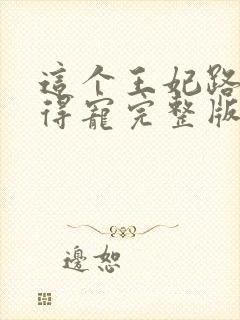 這个王妃路
得寵完整版
邊恕